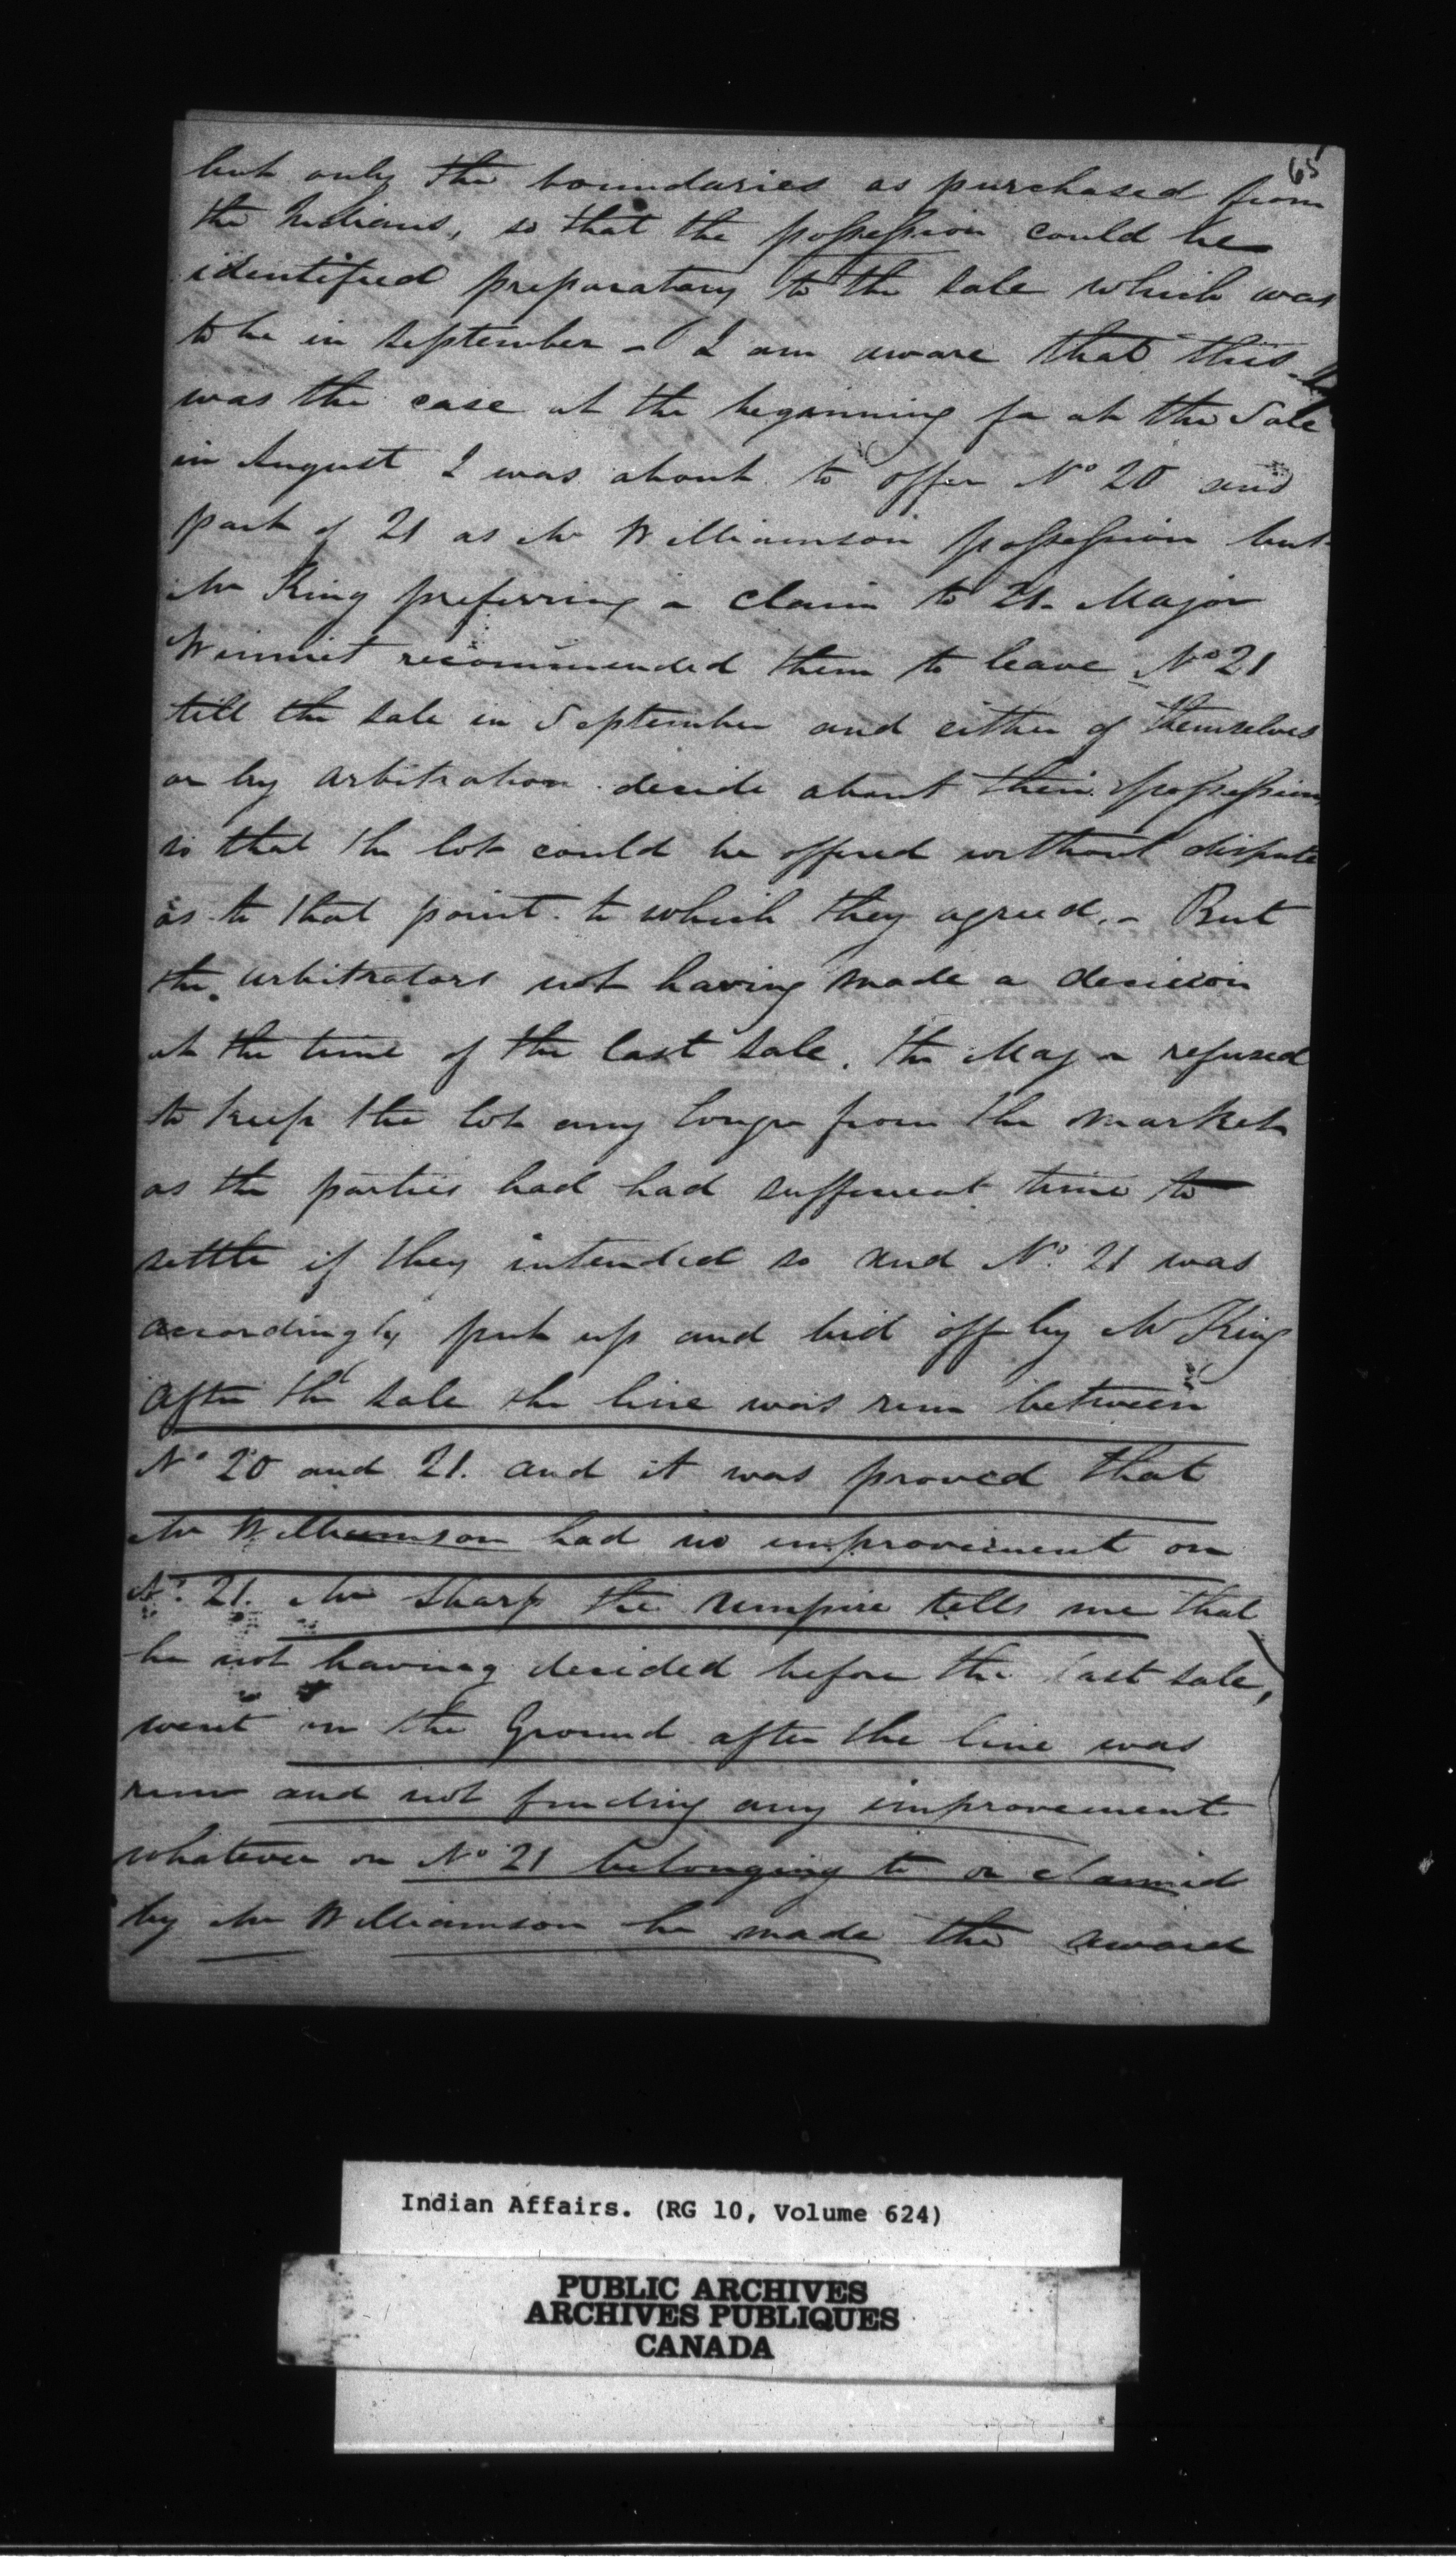 65
but only the boundaries as purchased from
the Indians, so that the possession could be
identified preparatory to the sale which was
to be in September - I am aware that this
was the case at the beginning for at the Sale
in August I was about to offer No 20 and
part of 21 as Mr Williamson possession but
Mr King preferring a claim to 21. Major
Winniet recommended them to leave No 21
till the sale in September and either of themselves
or by arbitration decide about their possession
so that the lot could be offered without dispute
as to that point. to which they agreed. - But
the arbitrators not having made a decision
at the time of the last sale. the Major refused
to keep the lot any longer from the market
as the parties had had sufficient time to
settle if they intended so and No. 21 was
accordingly put up and bid off by Mr King
After the sale the line was run between
No 20 and 21. and it was proved that
Mr Williamson had no improvement on
No. 21. Mr Sharp the umpire tells me that
he not having decided before the last sale,
went on the Ground after the line was
run and not finding any improvement
whatever on No 21 belonging to or claimed
by Mr Williamson he made the award
Indian Affairs. (RG 10, Volume 624)
PUBLIC ARCHIVES
ARCHIVES PUBLIQUES
CANADA